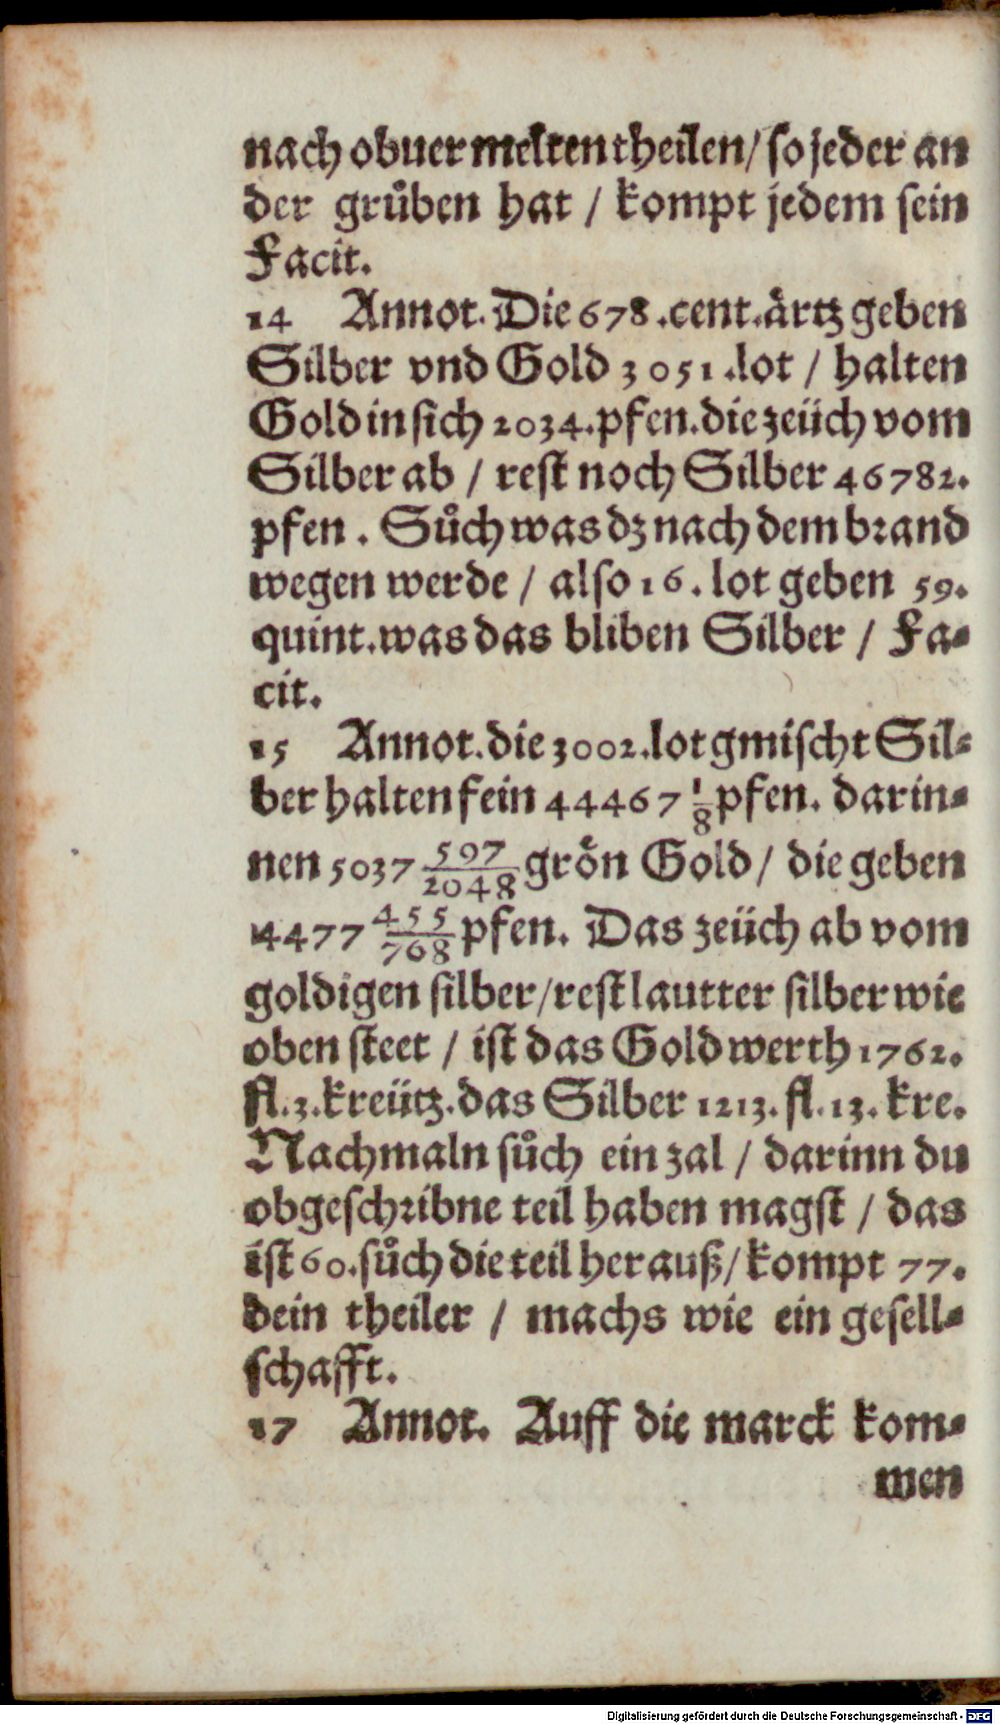 nach obuermelten theilen/ so jeder an
der gruͦben hat / kompt jedem sein
Facit.
14 Annot. Die 678. cent. aͤrtz geben
Silber vnd Gold 3051. lot / halten
Gold in sich 2034. pfen. die zeuͤch vom
Silber ab / rest noch Silber 46782.
pfen. Suͦch was dz nach dem brand
wegen werde / also 16. lot geben 59.
quint. was das bliben Silber / Fa-
cit.
15 Annot. die 3002. lot gmischt Sil-
ber halten fein 44467 1/8 pfen. darin-
nen 5037 597/2048 groͤn Gold / die geben
14477 455/768 pfen. Das zeuͤch ab vom
goldigen silber / rest lautter silber wie
oben steet / ist das Gold werth 1762.
fl. 3. kreuͤtz. das Silber 1213. fl. 13. kre.
Nachmaln suͦch ein zal / darinn du
obgeschribne teil haben magst / das
ist 60. suͦch die teil herauß / kompt 77.
dein theiler / machs wie ein gesell-
schafft.
17 Annot. Auff die marck kom-
men
Digitalisierung gefördert durch die Deutsche Forschungsgemeinschaft - DFG